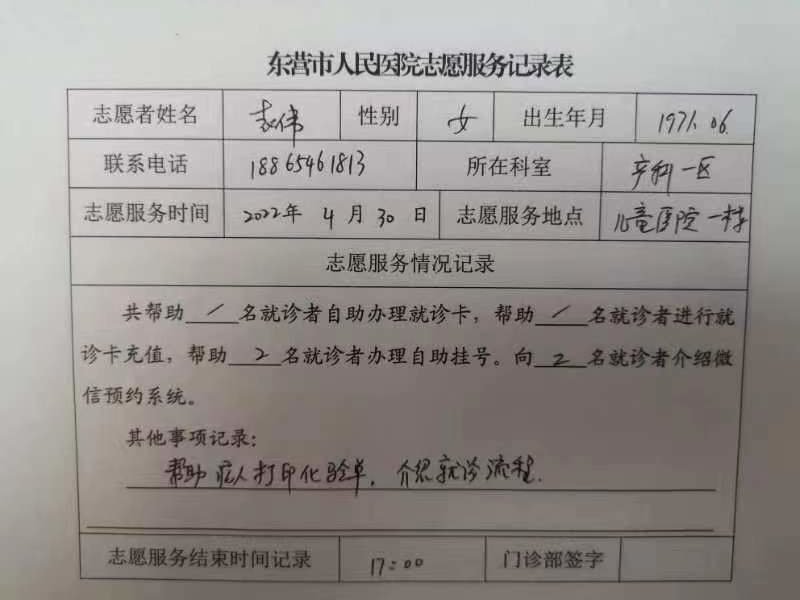 东营市人民医院志愿服务记录表
志愿者姓名 袁伟 性别 女 出生年月 1971.06.
联系电话 18865461813 所在科室 产科一区
志愿服务时间 2022年 4 月 30 日 志愿服务地点 儿童医院一楼
志愿服务情况记录
共帮助 / 名就诊者自助办理就诊卡，帮助 / 名就诊者进行就
诊卡充值，帮助 2 名就诊者办理自助挂号。向 2 名就诊者介绍微
信预约系统。
其他事项记录：
帮助病人打印化验单，介绍就诊流程.
志愿服务结束时间记录 17:00 门诊部签字